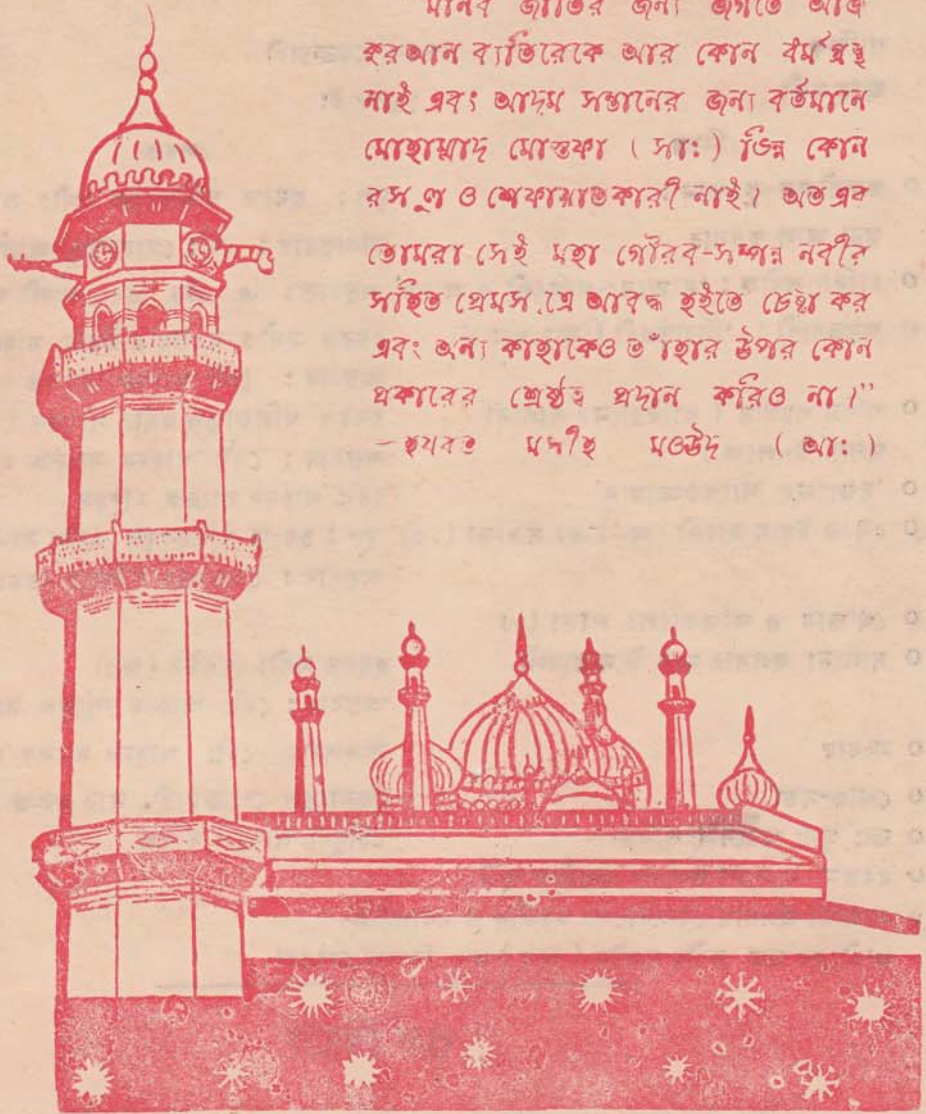 মানব জাতির জন্য জগতে আজ
কুরআন ব্যতিরেকে আর কোন ধর্ম গ্রন্থ
নাই এবং আদম সন্তানের জন্য বর্তমানে
মোহাম্মাদ মোস্তফা ( সাঃ ) ভিন্ন কোন
রসূল ও শেফায়াতকারী নাই। অতএব
তোমরা সেই মহা গৌরব-সম্পন্ন নবীর
সহিত প্রেমসূত্রে আবদ্ধ হইতে চেষ্টা কর
এবং অন্য কাহাকেও তাঁহার উপর কোন
প্রকারের শ্রেষ্ঠত্ব প্রদান করিও না।"
— হযরত মসীহ মওউদ ( আঃ )